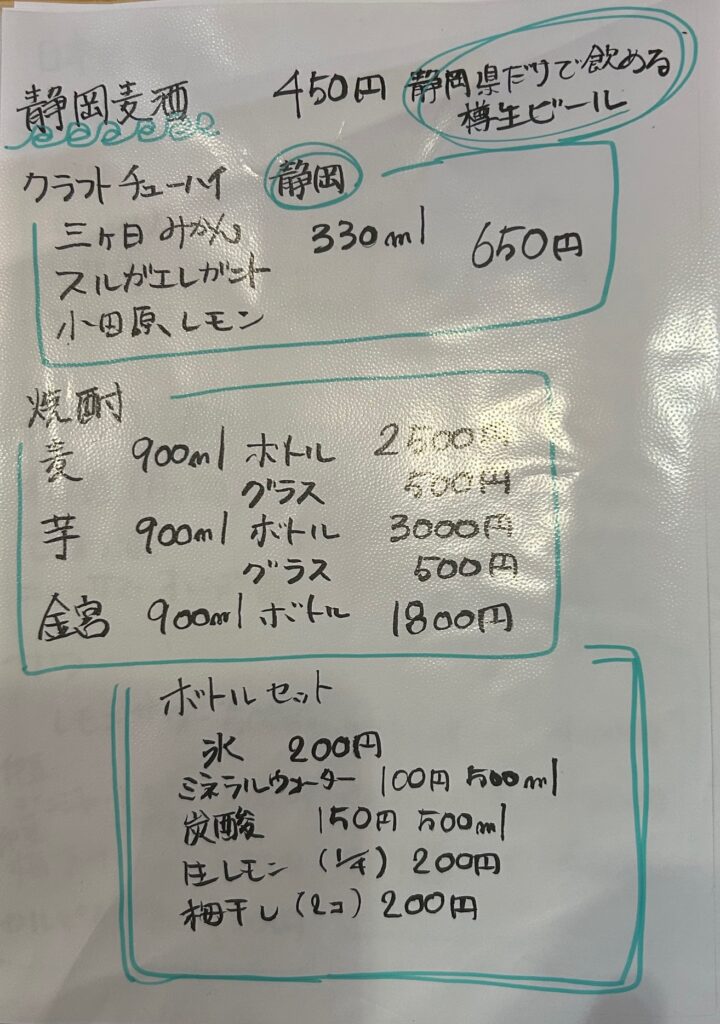 静岡麦酒 450円 静岡県だけで飲める
樽生ビール
クラフトチューハイ 静岡
三ヶ日みかん 330ml 650円
スルガエレガント
小田原レモン
焼酎
麦 900ml ボトル 2500円
グラス 500円
芋 900ml ボトル 3000円
グラス 500円
金宮 900ml ボトル 1800円
ボトルセット
氷 200円
ミネラルウォーター 100円 500ml
炭酸 150円 500ml
生レモン (1/4) 200円
梅干し (2コ) 200円